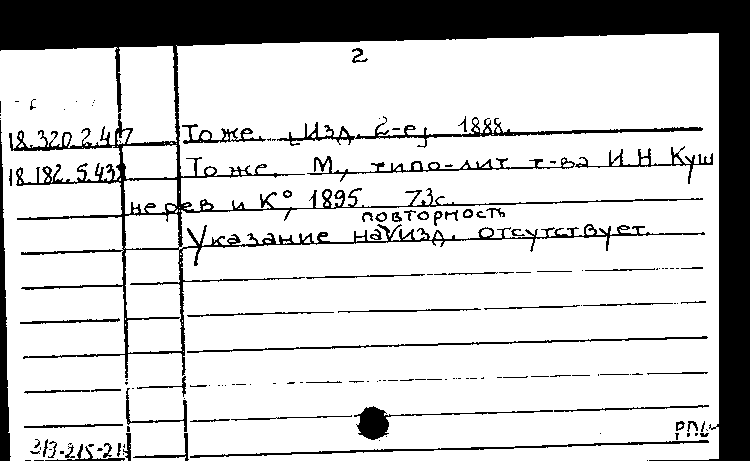 2
18.320.2.417 То же. [Изд. 2-е], 1888.
18.182.5.432 То же. М., типо-лит. т-ва И.Н. Куш
нерев и К°, 1895. 73с.
повторность
Указание на V изд. отсутствует.